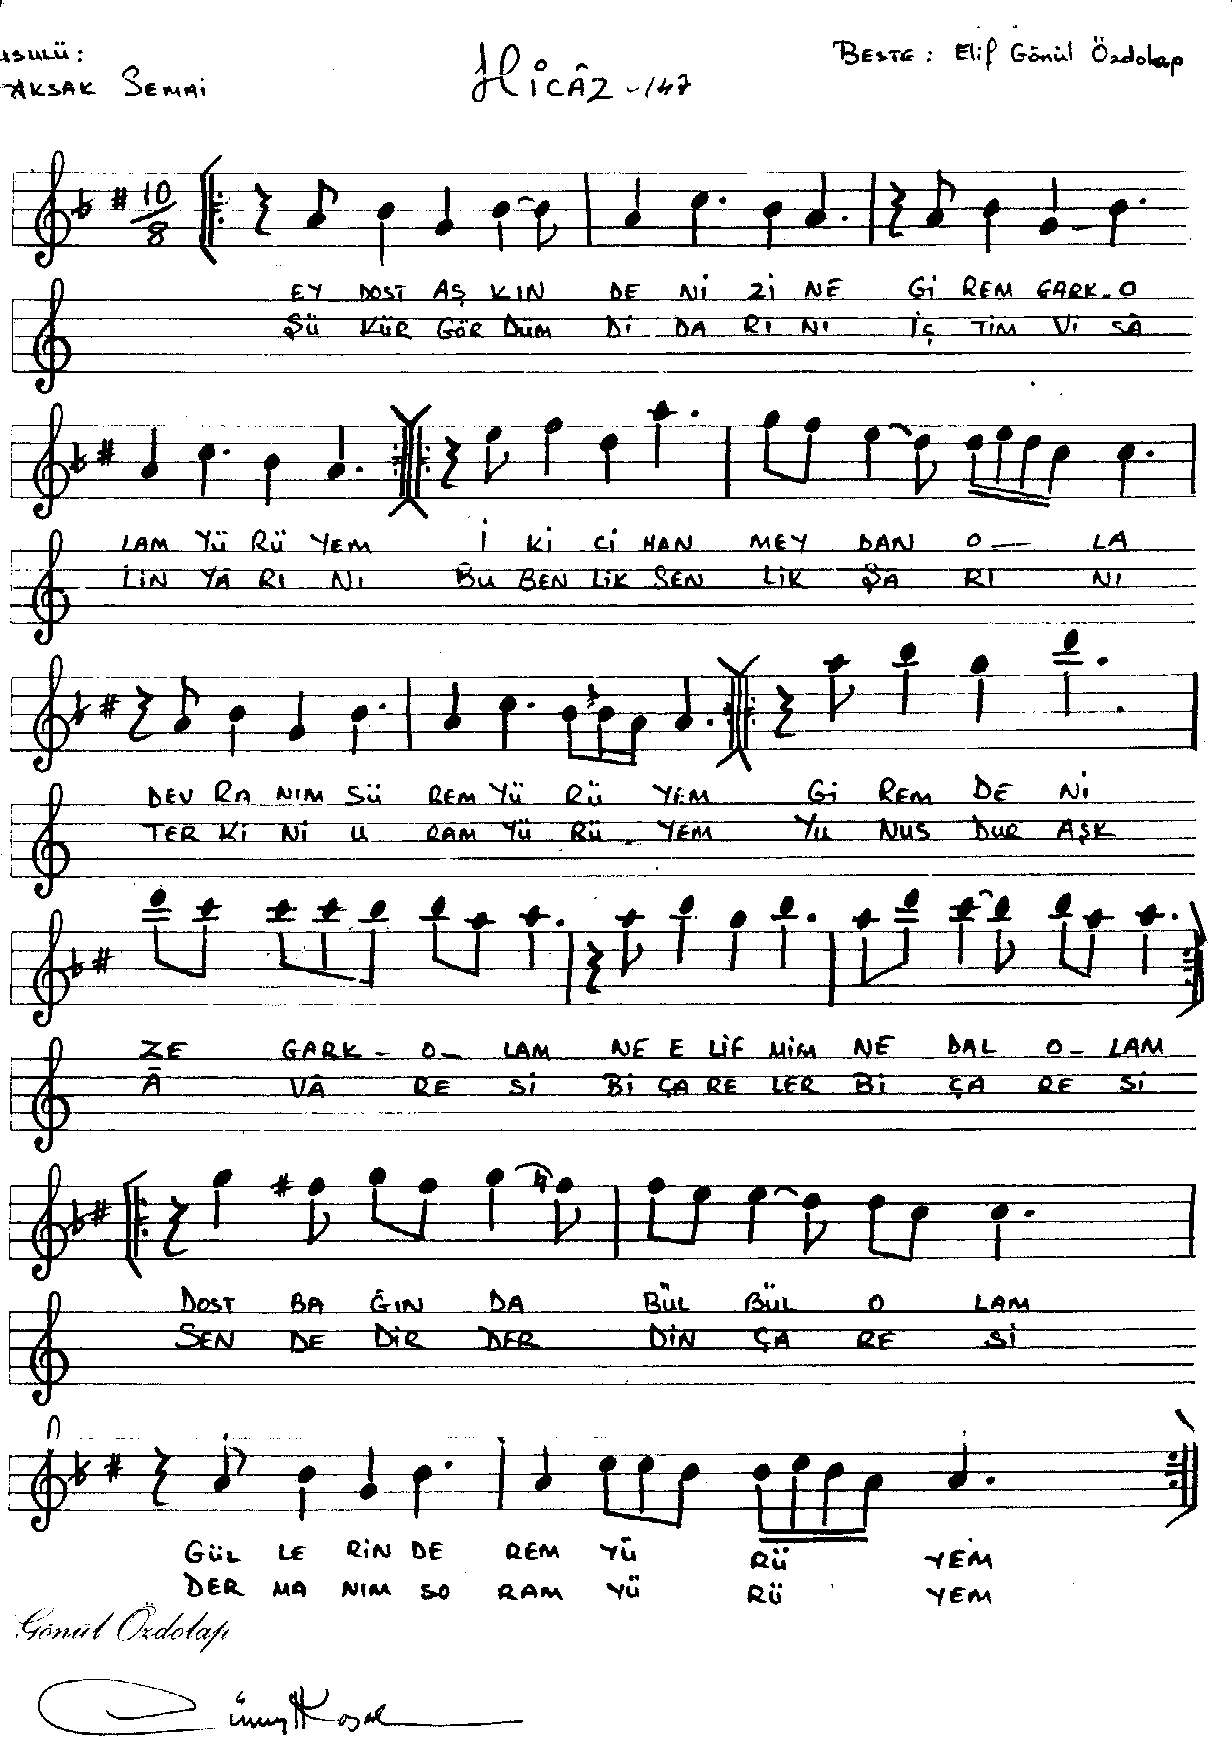 USULÜ:
AKSAK SEMAİ
HİCÂZ -147
BESTE: Elif Gönül Özdolap
10
8
EY DOST AŞ KIN DE Nİ Zİ NE Gİ REM GARK-O
ŞÜ KÜR GÖR DÜM Dİ DA RI NI İÇ TİM Vİ SÂ
LAM YÜ RÜ YEM İ Kİ Cİ HAN MEY DAN O — LA
LİN YÂ RI NI BU BEN LİK SEN LİK ŞA RI NI
DEV RA NIM SÜ REM YÜ RÜ YEM Gİ REM DE Nİ
TER Kİ Nİ U RAM YÜ RÜ YEM YU NUS DUR AŞK
ZE GARK - O - LAM NE E LİF MİM NE DAL O - LAM
Â VÂ RE Sİ Bİ ÇA RE LER Bİ ÇA RE Sİ
DOST BA ĞIN DA BÜL BÜL O LAM
SEN DE DİR DER DİN ÇA RE Sİ
GÜL LE RİN DE REM YÜ RÜ YEM
DER MA NIM SO RAM YÜ RÜ YEM
Gönül Özdolap